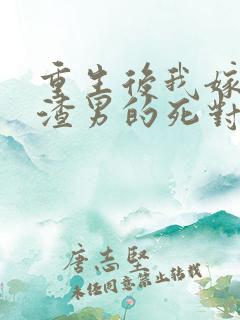 重生後我嫁
渣男的死對
唐志堅
未經同意禁止转载